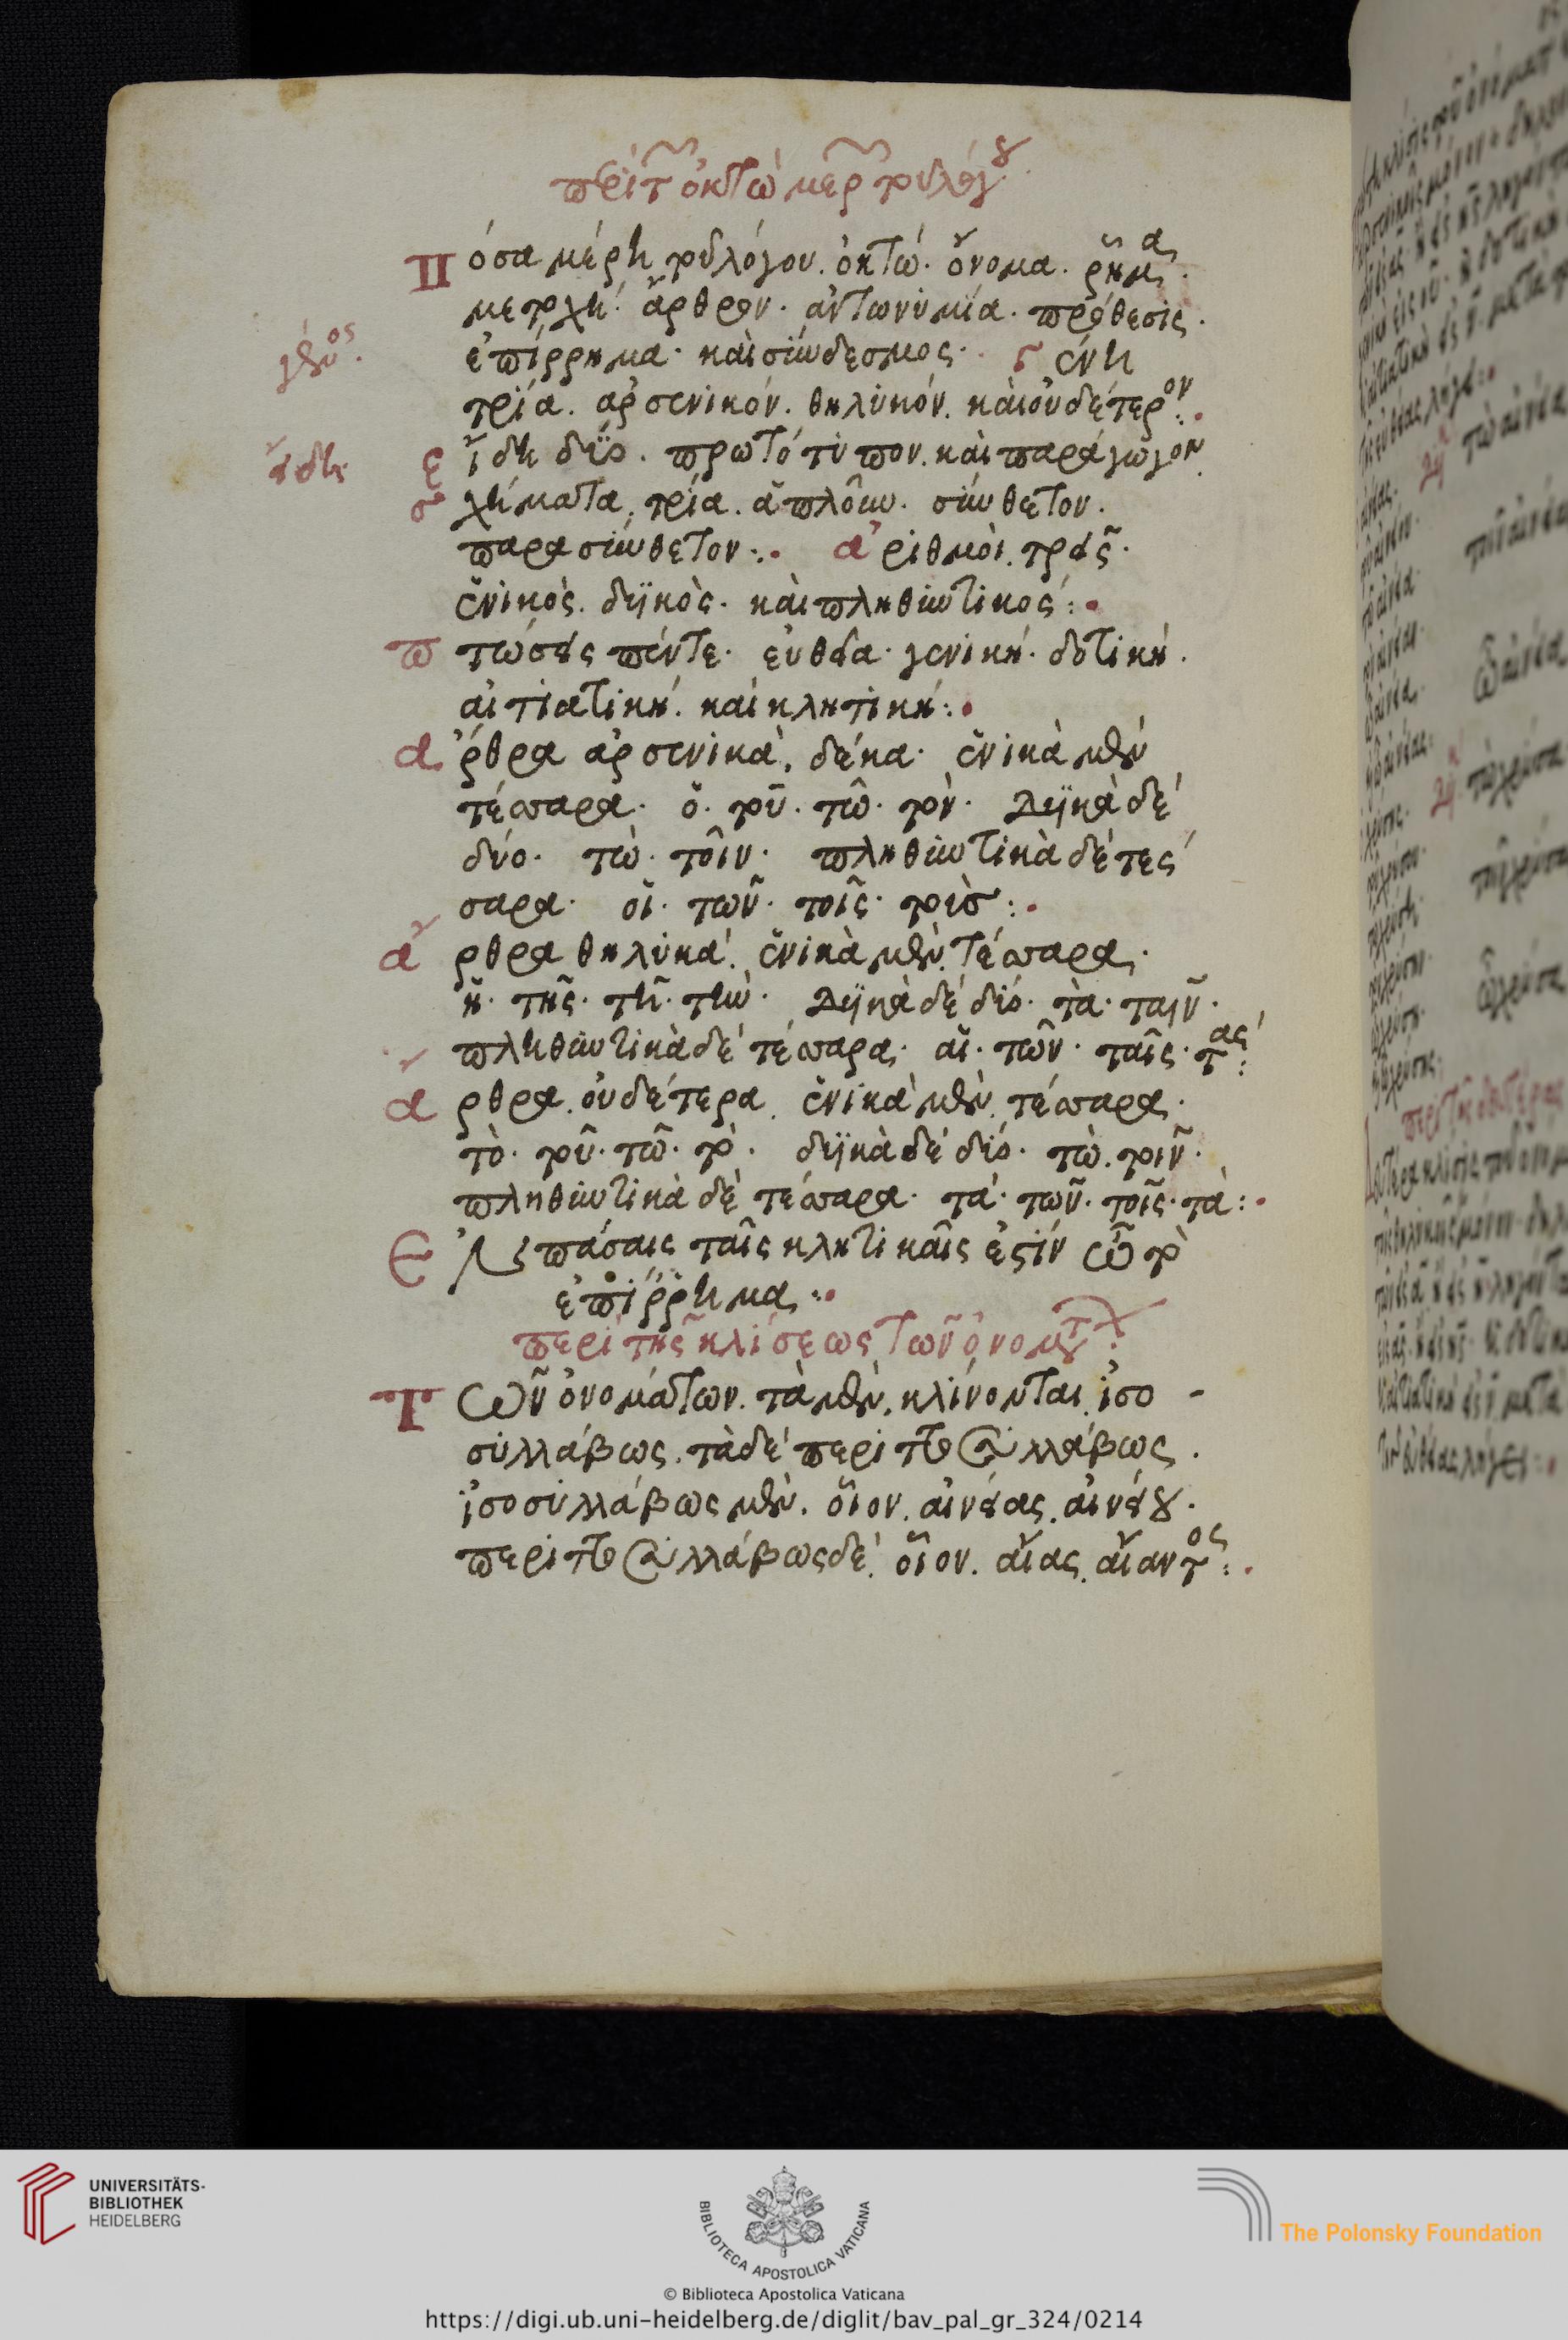 περὶ τῶν ὀκτὼ μερῶν τοῦ λόγου
Πόσα μέρη τοῦ λόγου. ὀκτώ. ὄνομα. ῥῆμα.
μετοχή. ἄρθρον. ἀντωνυμία. πρόθεσις.
γένος.
ἐπίρρημα. καὶ σύνδεσμος. γένη
τρία. ἀρσενικόν. θηλυκόν. καὶ οὐδέτερον:.
εἴδη
εἴδη δύο. πρωτότυπον. καὶ παράγωγον
σχήματα τρία. ἁπλοῦν. σύνθετον.
παρασύνθετον:. ἀριθμοὶ. τρεῖς.
ἑνικὸς. δϋικὸς. καὶ πληθυντικός:.
πτώσεις πέντε. εὐθεῖα. γενική. δοτική.
αἰτιατική. καὶ κλητική:.
ἄρθρα ἀρσενικὰ. δέκα. ἑνικὰ μὲν
τέσσαρα. ὁ. τοῦ. τῷ. τὸν. Δϋικὰ δέ
δύο. τὼ. τοῖν. πληθυντικὰ δὲ τές
σαρα. οἱ. τῶν. τοῖς. τοὺς:.
ἄρθρα θηλυκά. ἑνικὰ μὲν. τέσσαρα.
ἡ. τῆς. τῇ. τὴν. Δϋικὰ δέ δύο. τὰ. ταῖν.
πληθυντικὰ δέ τέσσαρα. αἱ. τῶν. ταῖς. τάς:
ἄρθρα. οὐδέτερα. ἑνικὰ μὲν. τέσσαρα.
τὸ. τοῦ. τῷ. τὸ. δϋικὰ δὲ δύο. τὼ. τοῖν.
πληθυντικὰ δὲ τέσσαρα. τὰ. τῶν. τοῖς. τὰ:.
Ἐν πάσαις ταῖς κλητικαῖς ἐστὶν ὦ τὸ
ἐπίρρημα:.
περὶ τῆς κλίσεως τῶν ὀνομάτων:
Τῶν ὀνομάτων. τὰ μὲν. κλίνονται ἰσο-
συλλάβως. τὰ δέ περιττοσυλλάβως.
ἰσοσυλλάβως μὲν. οἷον. αἰνείας. αἰνείου.
περιττοσυλλάβως δέ. οἷον. αἴας. αἴαντος:.
UNIVERSITÄTS-
BIBLIOTHEK
HEIDELBERG
BIBLIOTECA APOSTOLICA VATICANA
The Polonsky Foundation
© Biblioteca Apostolica Vaticana
https://digi.ub.uni-heidelberg.de/diglit/bav_pal_gr_324/0214